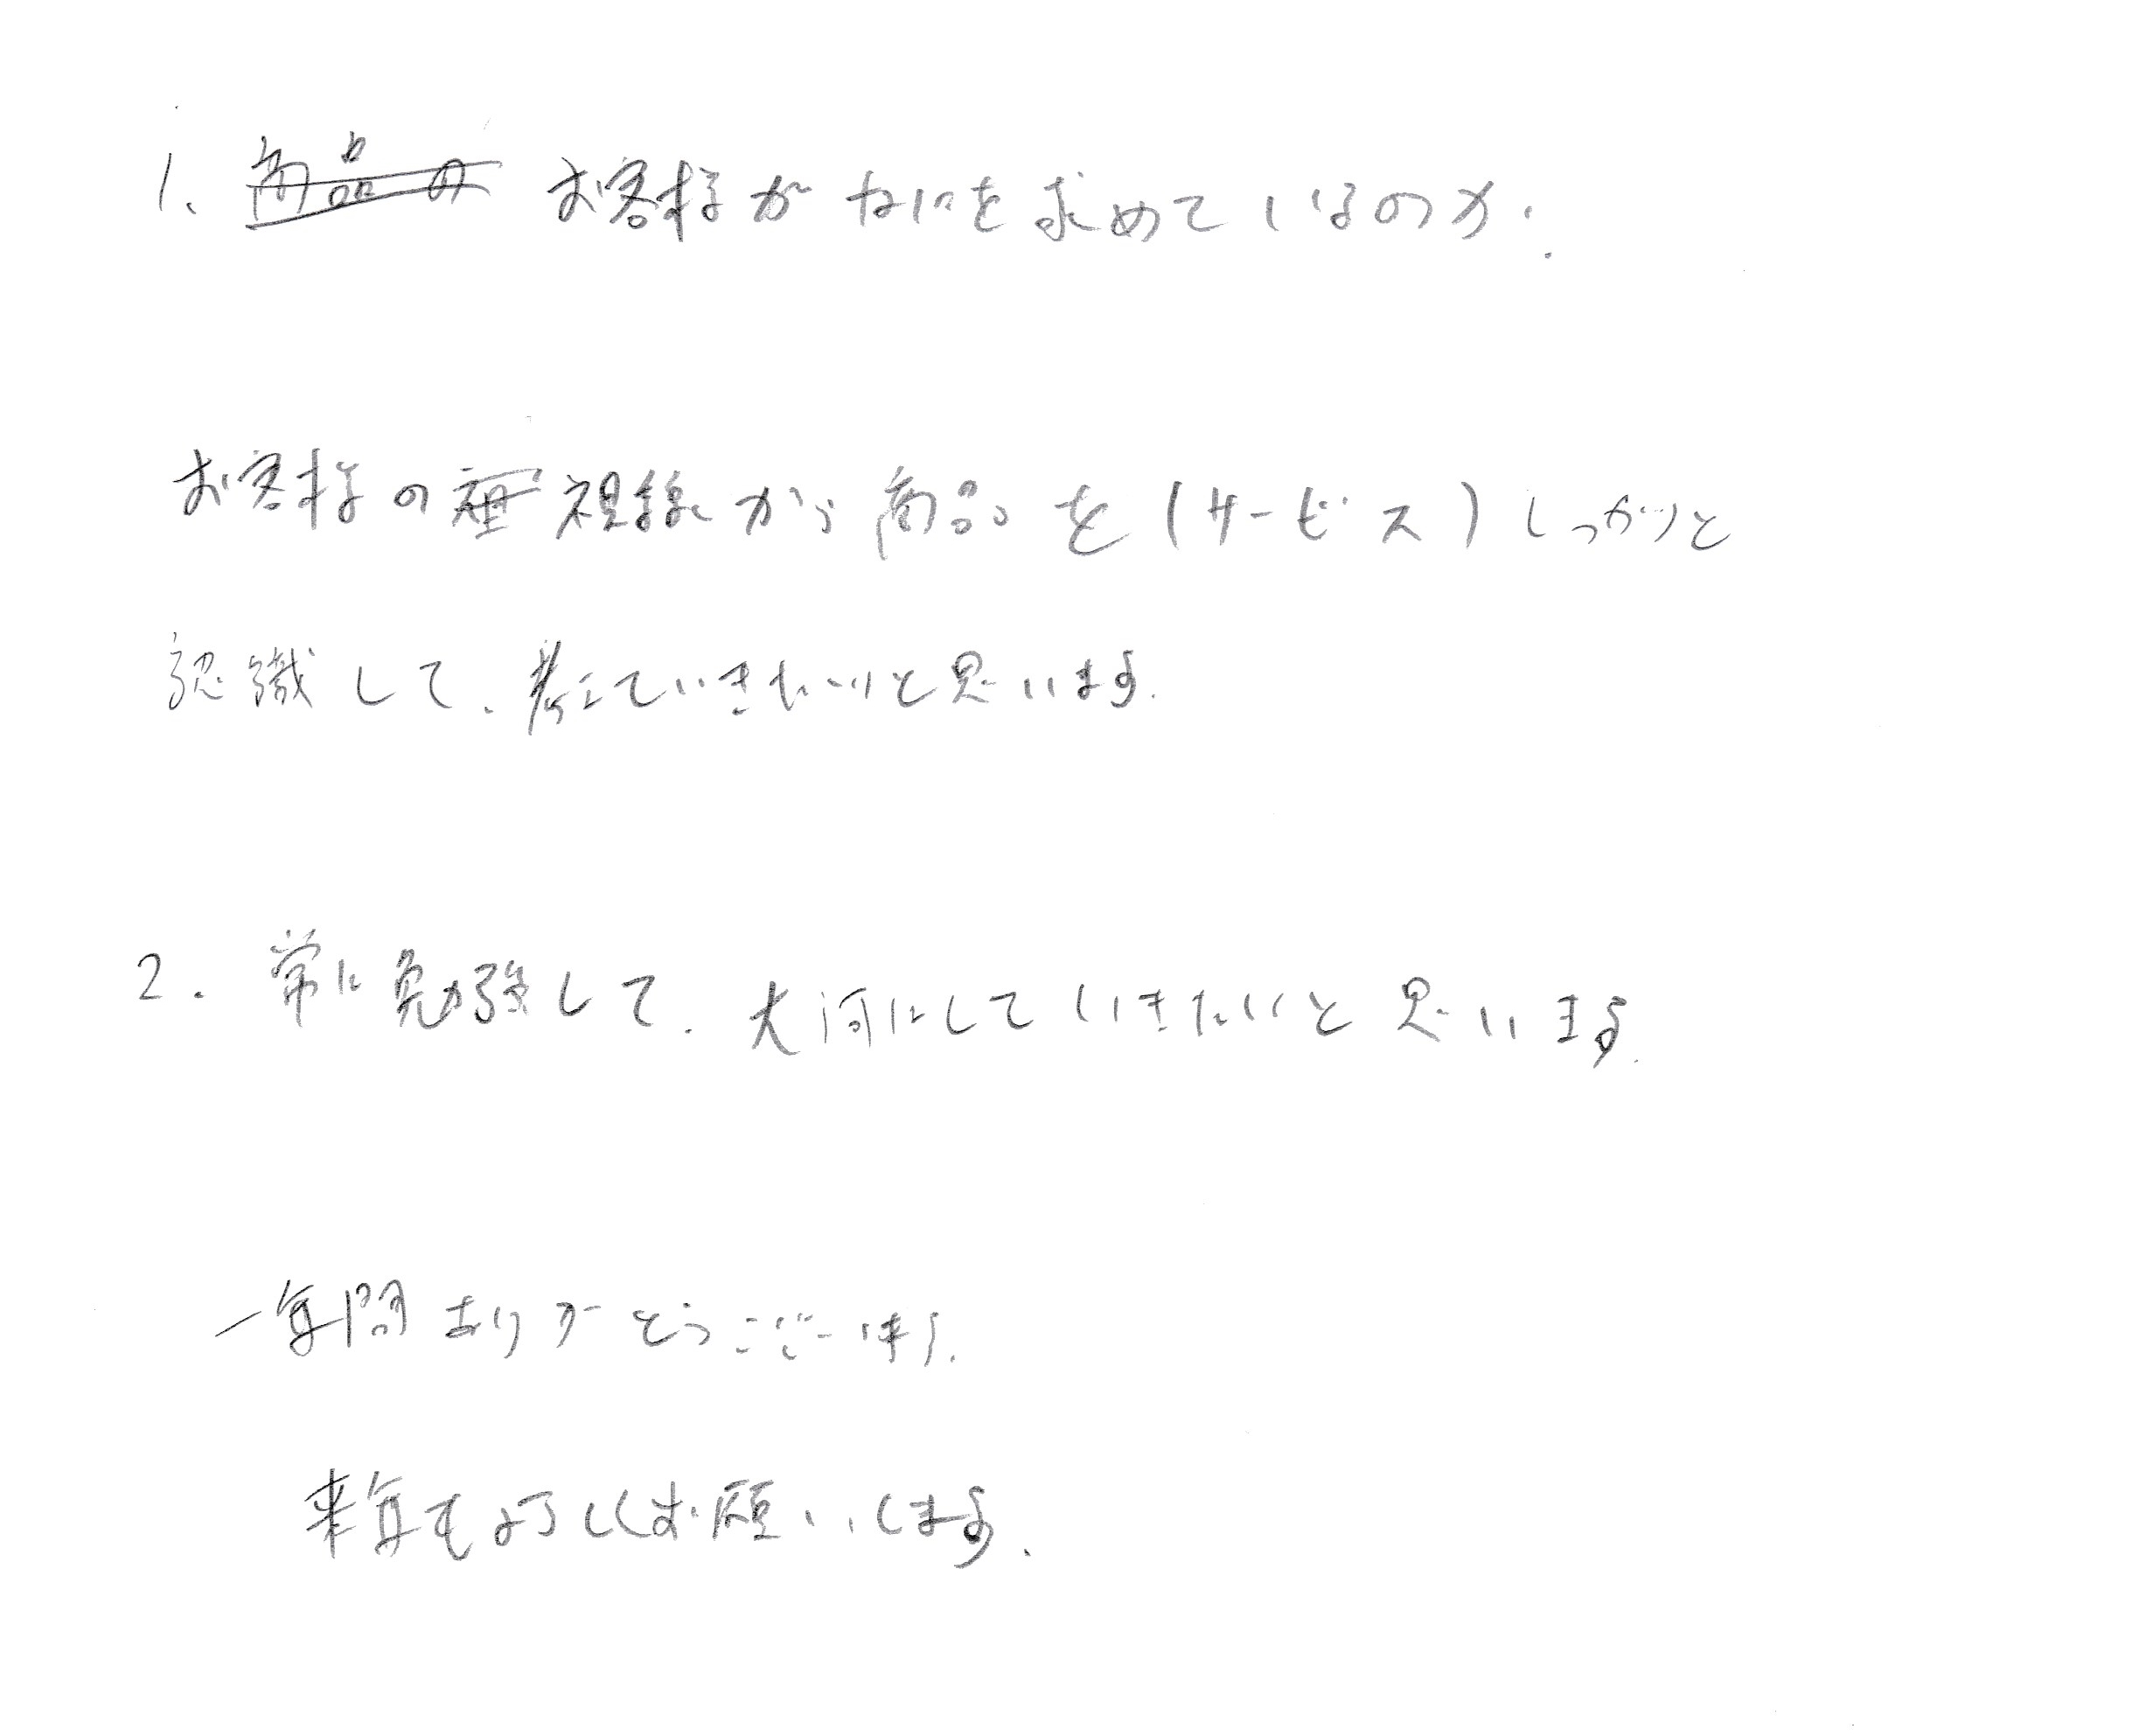 1、商品の お客様がなにを求めているのか.
お客様の 視線から商品を(サービス)しっかりと
認識して、考えていきたいと思います.
2. 常に勉強して、大 にしていきたいと思います.
一年間ありがとうございます.
来年もよろしくお願いします.